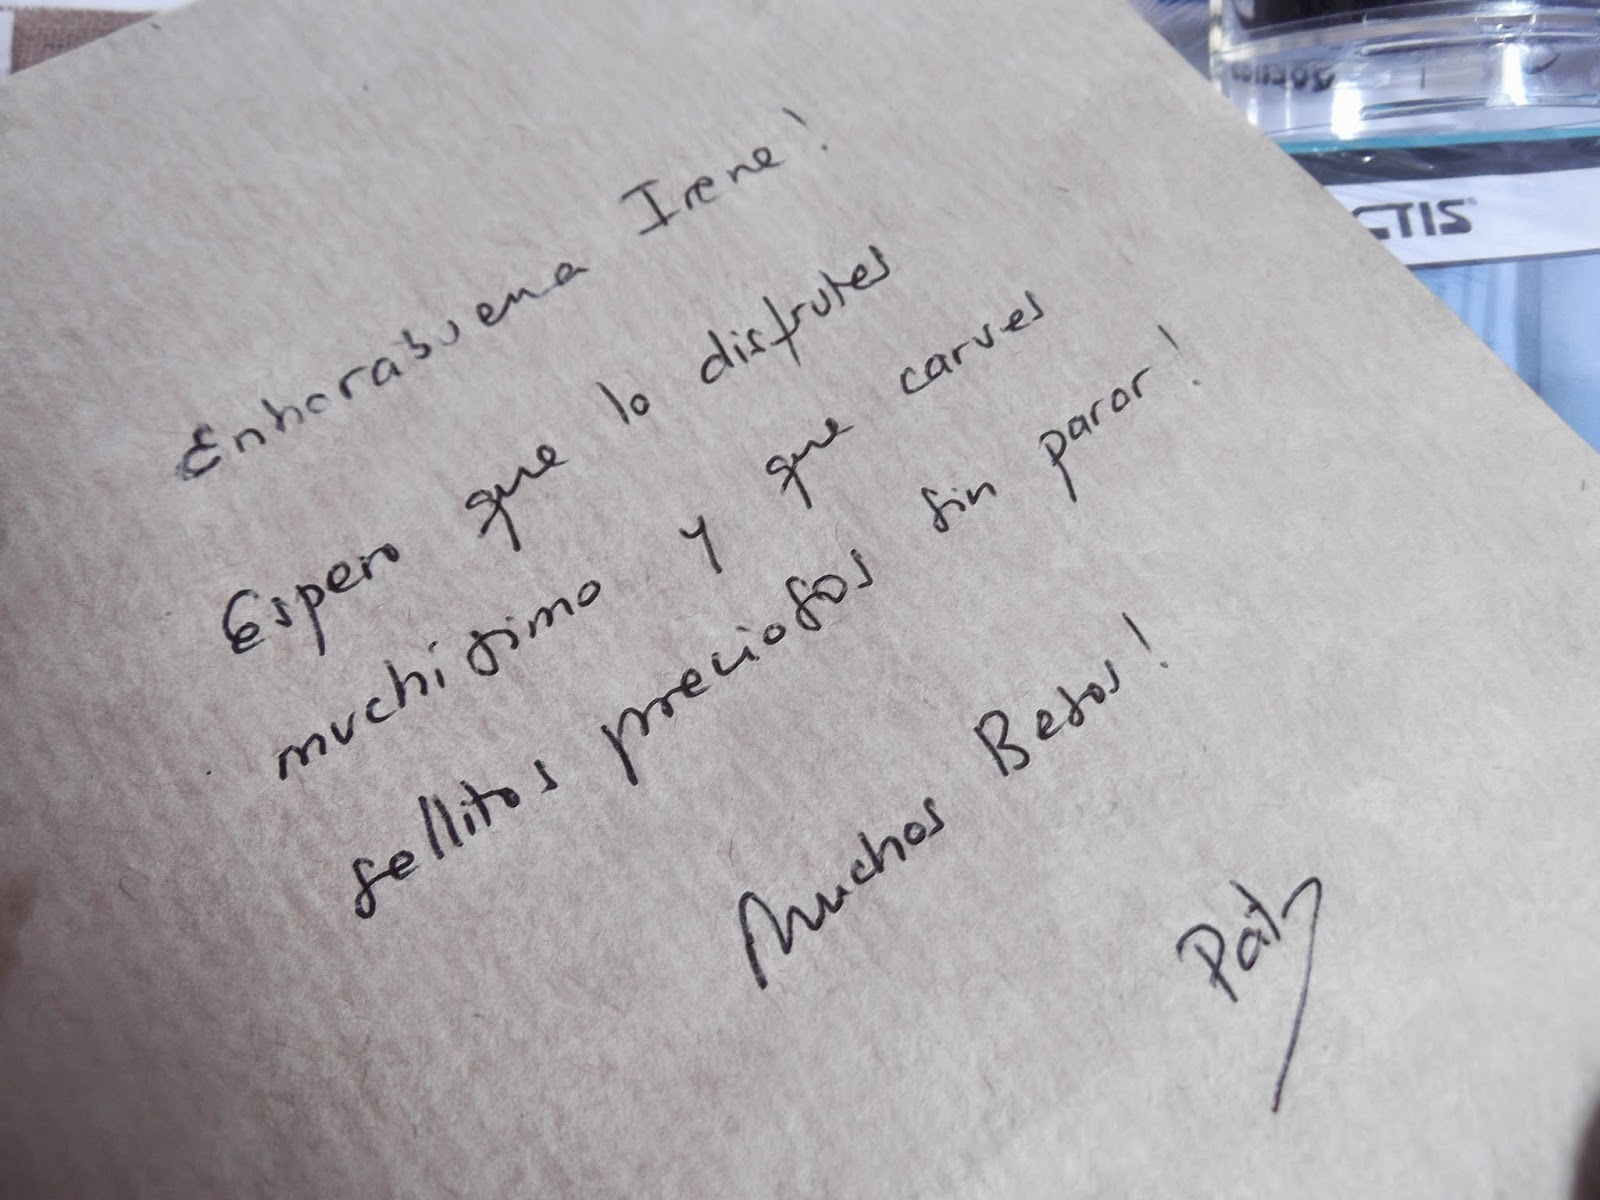 Enhorabuena Irene!
Espero que lo disfrutes
muchisimo y que carves
sellitos preciosos sin parar!
Muchos Besos!
Paty
CTIS